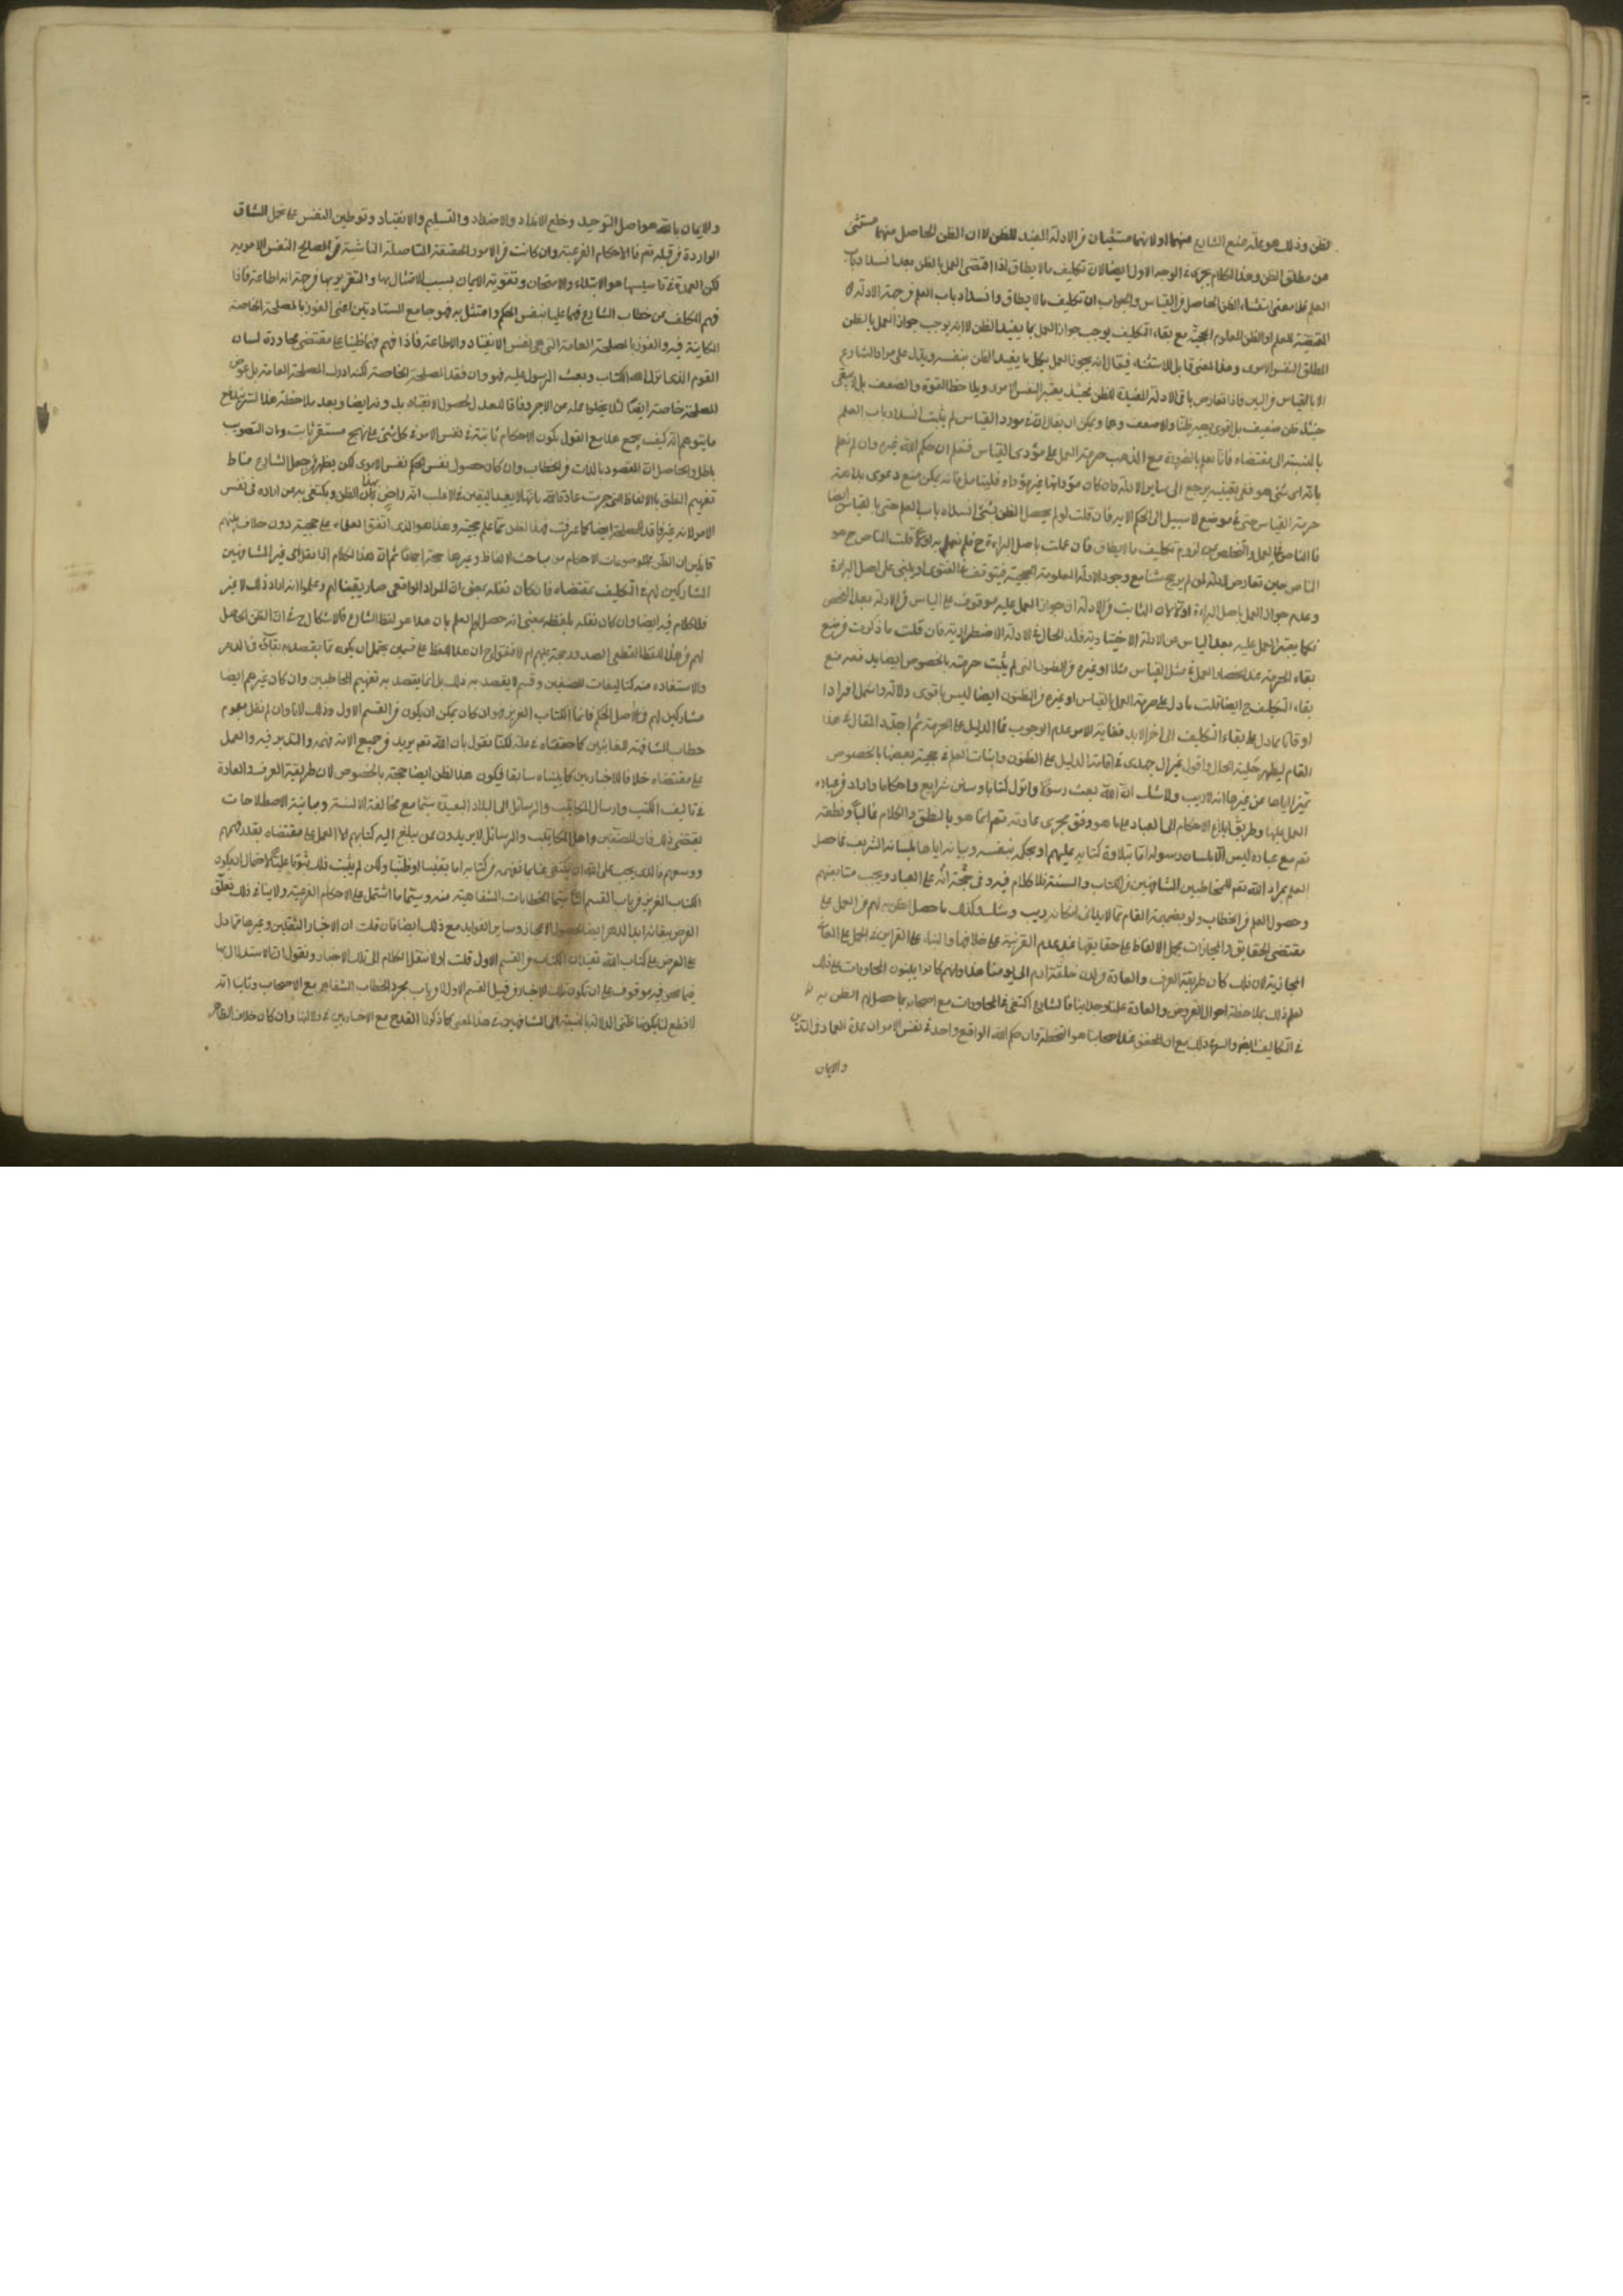 لظن وذلك هو علة منع الشارع منهما او لانهما مستثنيان من الادلة المفيد للظن لا ان الظن الحاصل منهما مستثنى
من مطلق الظن وهذا الكلام يجري في الوجه الاول ايضا لان تكليف ما لا يطاق اذا اقتضى العمل بالظن بعد انسداد باب
العلم فلا معنى لاستثناء الظن الحاصل من القياس والجواب ان تكليف ما لا يطاق وانسداد باب العلم من جهة الادلة
المقتضية للعلم او الظن المعلوم الحجية مع بقاء التكليف يوجب جواز العمل بما يفيد الظن لا انه يوجب جواز العمل بالظن
المطلق النفس الامري وهذا المعنى قابل للاستثناء فيقال انه يجوز العمل بكل ما يفيد الظن بنفسه ويدل على مراد الشارع
الا بالقياس في البين فاذا تعارض باقي الادلة المفيدة للظن فحينئذ يعتبر الظن النفس الامري ويلاحظ القوة والضعف بل لا يبقى
حينئذ ظن ضعيف بل الاقوى يصير ظنا والاضعف وهما ويمكن ان يقال ان في مورد القياس لم يثبت انسداد باب العلم
بالنسبة الى مقتضاه فانا نعلم بالضرورة من المذهب حرمة العمل على مؤدى القياس فنعلم ان حكم الله غيره وان لم نعلم
بانه اي شيء هو ففي تعيينه يرجع الى ساير الادلة وان كان مؤداها عين مؤداه فليتامل فانه يمكن منع دعوى بداهة
حرمة القياس حتى في موضع لا سبيل الى الحكم الا به فان قلت لو لم يحصل الظن بشيء لانسداد باب العلم حتى بالقياس ايضا
فما المناص في العمل والتخلص من لزوم تكليف ما لا يطاق فان عملت باصل البراءة ح فلم لم تعمل به اولا قلت المناص ح هو
المناص حين تعارض الادلة لمن لم يرجح شيئا مع وجود الادلة المعلومة الحجية فيتوقف في الفتوى او يبني على اصل البراءة
وعدم جواز العمل باصل البراءة اولا لان الثابت من الادلة ان جواز العمل عليه موقوف على الياس من الادلة بعد الفحص
فكما يعتبر العمل عليه بعد الياس من الادلة الاختيارية فكذا الحال في الادلة الاضطرارية فان قلت ما ذكرت من منع
بقاء الحرمة عند انحصار العمل في مثل القياس مثلا او غيره من الظنون التي لم يثبت حرمته بالخصوص ايضا يدفعه منع
بقاء التكليف ح ايضا قلت ما دل على حرمة العمل بالقياس او غيره من الظنون ايضا ليس باقوى دلالة واشمل افرادا
او قاتا مما دل على بقاء التكليف الى اخر الابد فغاية الامر عدم الوجوب فما الدليل على الحرمة ثم اجدد المقال في هذا
المقام ليظهر جلية الحال واقول غير ال جهدي في اقامة الدليل على الظنون واثبات العلم في حجية بعضها بالخصوص
تميزا اياها عن غيرها انه لا ريب ولا شك ان الله تعالى بعث رسولا وانزل كتابا وسن شرايع واحكاما واراد من عباده
العمل بها وطريق ابلاغ الاحكام الى العباد على ما هو وفق مجرى عادته تعم انما هو بالنطق والكلام غالبا ونطقه
تعم مع عباده ليس الا بلسان رسوله اما بتلاوة كتابه عليهم او بحكمه بنفسه وبيانه اياها بلسانه الشريف فما حصل
العلم بمراد الله تعم للمخاطبين المشافهين من الكتاب والسنة فلا كلام فيه وفي حجة انه على العباد ويجب متابعتهم
وحصول العلم من الخطاب ولو بضميمة المقام مما لا يدانى امكانه ريب وشك وكذلك ما حصل الظن به لهم من العمل على
مقتضى الحقايق والمجازات بحمل الالفاظ على حقايقها عند عدم القرينة على خلافها والبناء على القراين في الحمل على المعاني
المجازية لان ذلك كان طريقة العرف والعادة من لدن خلقة ادم الى يومنا هذا وانهم كانوا يبنون المحاورات على ذلك
يعلم ذلك بملاحظة احوال العرف والعادة علما وجدانيا فالشارع اكتفى في المحاورات مع اصحابه بما حصل لهم الظن به
في التكاليف ايضا والسر في ذلك مع ان المحقق عند اصحابنا هو التخطئة وان حكم الله الواقعي واحد في نفس الامر ان عمدة العماد في التكاليف
والايمان
والايمان بالله هو اصل التوحيد وخلع الانداد والاضداد والتسليم والانقياد وتوطين النفس على تحمل المشاق
الواردة من قبله تعم فالاحكام الفرعية وان كانت من الامور الحقيقة المتاصلة الناشية عن المصالح النفس الامرية
لكن العمدة في تاسيسها هو الابتلاء والامتحان وتقوية الايمان بسبب الامتثال بها والتقرب بها من جهة انه اطاعة فاذا
فهم المكلف من خطاب الشارع فهما علميا بنفس الحكم وامتثل به فهو جامع للسعادتين اعني الفوز بالمصلحة الخاصة
الكاينة فيه والفوز بالمصلحة العامة التي هي نفس الانقياد والاطاعة فاذا فهم فهما ظنيا على مقتضى محاورة لسان
القوم الذي انزل الله الكتاب وبعث الرسول عليه فهو وان فقد المصلحة الخاصة لكنه ادرك المصلحة العامة بل عوض
المصلحة الخاصة ايضا لئلا يخلو عمله من الاجر وفاقا للعدل لحصول الانقياد بدونه ايضا وبعد ملاحظة هذا السر يندفع
ما يتوهم انه كيف يجمع هذا مع القول بكون الاحكام ثابتة في نفس الامر في كل شيء على نهج مستقر ثابت وان التصويب
باطل والحاصل ان المقصود بالذات من الخطاب وان كان حصول نفس الحكم النفس الامري لكن يظهر من جعل الشارع مناط
تفهيم النطق بالالفاظ التي جرت عادة الله بانها لا يفيد اليقين في الاغلب انه راض بهذا الظن ويكتفي به عما اراده في نفس
الامر لانه غير فاقد للمصلحة ايضا كما عرفت فهذا الظن مما علم حجيته وهذا هو الذي اتفق العلماء على حجيته دون خلاف بينهم
قائلين ان الظن في الموضوعات الاحكام من مباحث الالفاظ وغيرها حجة اجماعا ثم ان هذا الكلام اذا نقل الى غير المشافهين
المشاركين لهم في التكليف بمقتضاه فان كان نقله بمعنى ان المراد الواقعي صار يقينا لهم وعلموا انه اراد ذلك لا غير
فلا كلام فيه ايضا وان كان نقله بلفظه بمعنى انه حصل لهم العلم بان هذا هو لفظ الشارع فالاشكال ح في ان الظن الحاصل
لهم من هذا اللفظ القطعي الصدور حجة عليهم ام لا فنقول ح ان هذا اللفظ على قسمين يحتمل ان يكون مما يقصد به بقاؤه في الدهر
والاستفادة منه كتاليفات المصنفين وقسم لا يقصد به ذلك بل انما يقصد به تفهيم المخاطبين وان كان غيرهم ايضا
مشاركين لهم في اصل الحكم فاما الكتاب العزيز فهو ان كان يمكن ان يكون من القسم الاول وذلك لانا وان لم نقل بعموم
خطاب المشافهة للغائبين كما حققناه في محله لكنا نقول بان الله تعم يريد من جميع الامة فهمه والتدبر فيه والعمل
على مقتضاه خلافا للاخباريين كما بيناه سابقا فيكون هذا الظن ايضا حجة بالخصوص لان طريقة العرف والعادة
في تاليف الكتب وارسال المكاتيب والرسائل الى البلاد البعيدة سيما مع مخالفة الالسنة ومباينة الاصطلاحات
يقتضي ذلك فان المصنفين واهل المكاتيب والرسائل لا يريدون ممن يبلغ اليه كتابهم الا العمل على مقتضاه بقدر فهمهم
ووسعهم فالله يجب على الله ان يكتفي عنا بما نفهمه من كتابه اما يقينا او ظنا ولكن لم يثبت ذلك ثبوتا علميا لاحتمال ان يكون
الكتاب العزيز من باب القسم الثاني سيما الخطابات الشفاهية منه وسيما ما اشتمل على الاحكام الفرعية ولا ينافي ذلك تعلق
الغرض ببقائه ابد الدهر ايضا لحصول الاعجاز وساير الفوايد مع ذلك ايضا فان قلت ان الاخبار الثقلين وغيرها مما دل
على العرض على كتاب الله تفيد ان الكتاب من القسم الاول قلت اولا ننقل الكلام الى تلك الاخبار ونقول ان الاستدلال بها
فيما نحن فيه موقوف على ان تكون تلك الاخبار من قبيل القسم الاول او باب مجرد الخطاب الشفاهي مع الاصحاب وثانيا انه
لا قطع لنا بكونها ظني الدلالة بالنسبة الى المشافهين في هذا المعنى كما ذكرنا القدح مع الاخباريين في دلالتها وان كان خلاف الظاهر